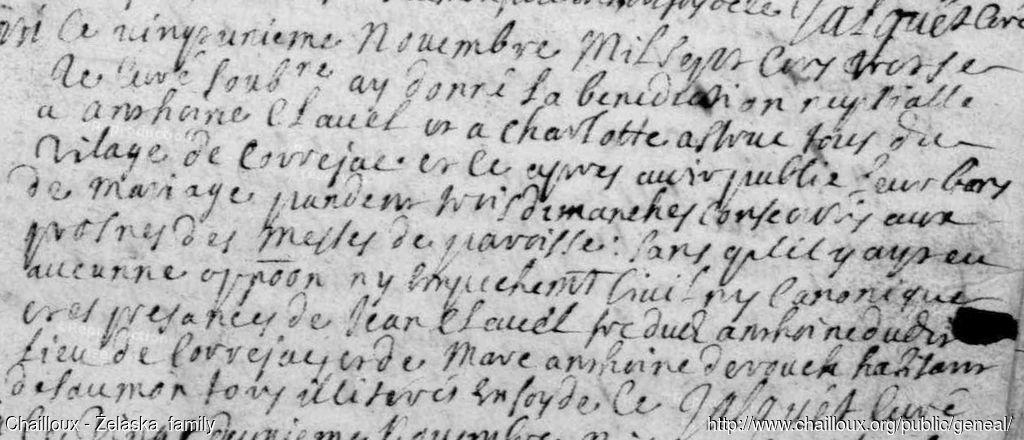 Jalquet Curé
Ce vingt unieme Novembre Mil sept cens treise
Je Curé soubre ay donné la benediction nuptialle
a anthoine Clauel et a Charlotte astruc tous du
Vilage de Correjac et ce apres auoir publie leur bans
de Mariage pandent trois dimanches consecutifs aux
prosnes des Messes de paroisse sans qu'il y ayt eu
aucunne oppoon ny empechemt Ciuil ny Canonique
et es presances de Jean Clauel fre dud anthoine dudit
lieu de Correjac et de Marc anthoine derouch habitant
de saumon tous illiteres En foy de Ce Jalquet Curé
Novembre
Chailloux - Żelaska family
http://www.chailloux.org/public/geneal/